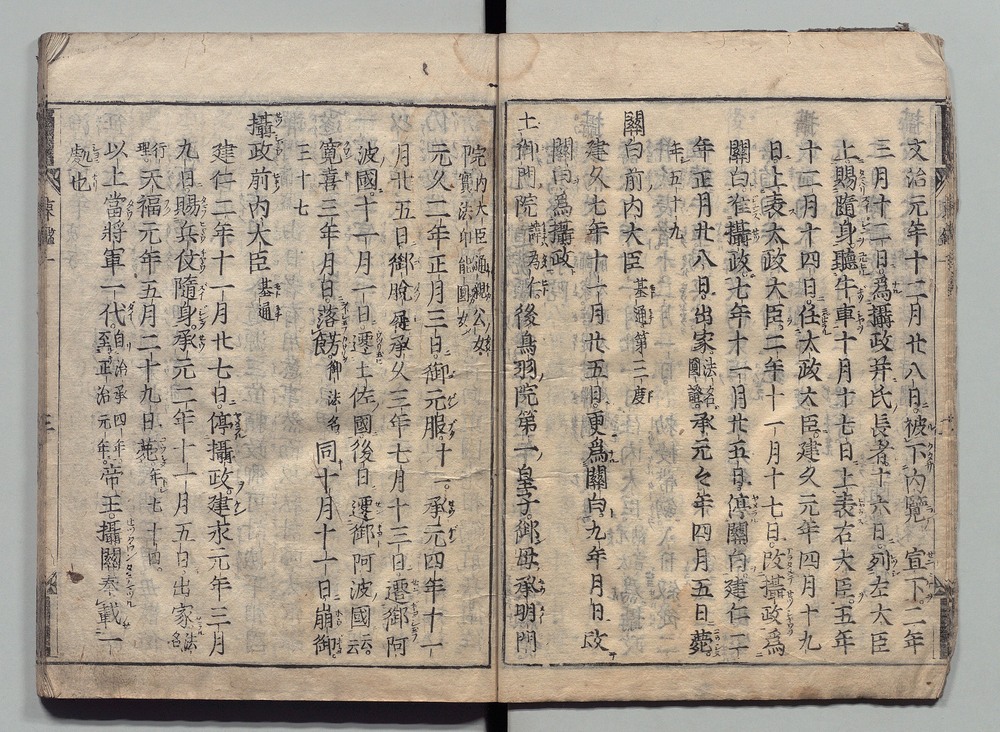 文治元年十二月廿八日被下内覽宣下二年
三月十二日為攝政并氏長者十六日列左大臣
上賜隨身聽牛車十月十七日上表右大臣五年
十二月十四日任太政大臣建久元年四月十九
日上表太政大臣二年十一月十七日改攝政為
關白准攝政七年十一月廿五日停關白建仁二
年正月廿八日出家法名圓證承元々年四月五日薨
年五十九
關白前内大臣基通第二度
建久七年十一月廿五日更為關白九年月日改
關白為攝政
土御門院諱為仁後鳥羽院第一皇子御母承明門
院内大臣通親公女實法印能圓女
元久二年正月三日御元服十一承元四年十一
月廿五日御脫屣承久三年七月十三日遷御阿
波國十一月一日遷土佐國後日遷御阿波國云云
寛喜三年月日落餝御法名同十月十一日崩御
三十七
攝政前内大臣基通
建仁二年十一月廿七日停攝政建永元年三月
九日賜兵仗隨身承元二年十一月五日出家法名
行理天福元年五月二十九日薨年七十四
以上當將軍一代自治承四年至正治元年帝王攝關奉載一
處也
東鑑一
三